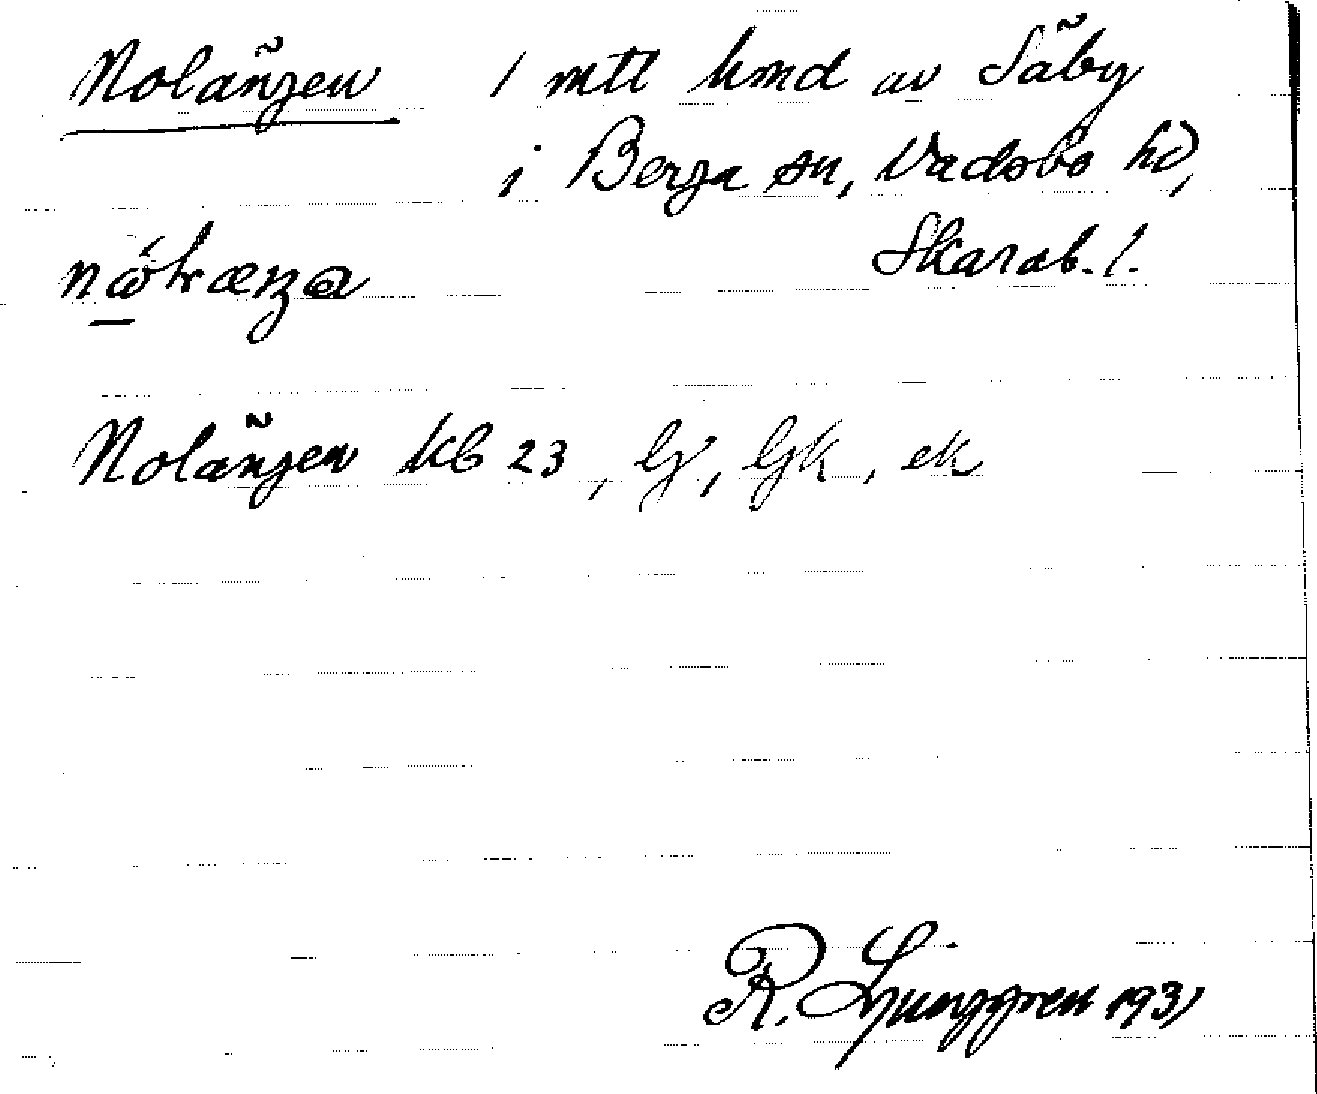 Nolängen 1 mtl hmd av Säby
i Berga sn, Vadsbo hd,
Skarab. l.
Nolängen kb 23, Gj, Gjk, ek
R. Ljunggren 1931